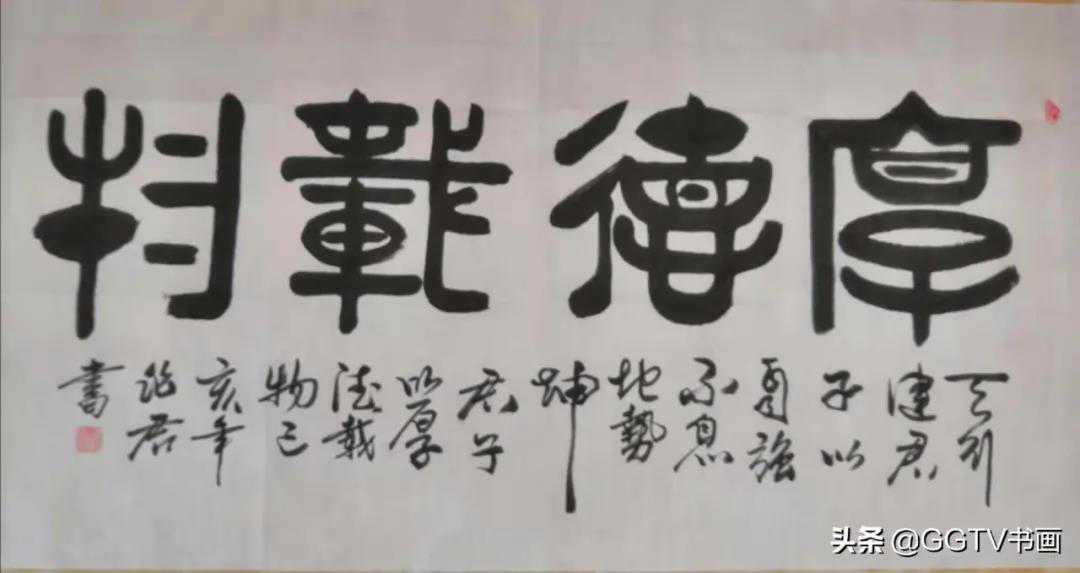 厚德載物
天行
健君
子以
自強
不息
地勢
坤
君子
以厚
德載
物己
亥年
君
書
头条 @GGTV书画